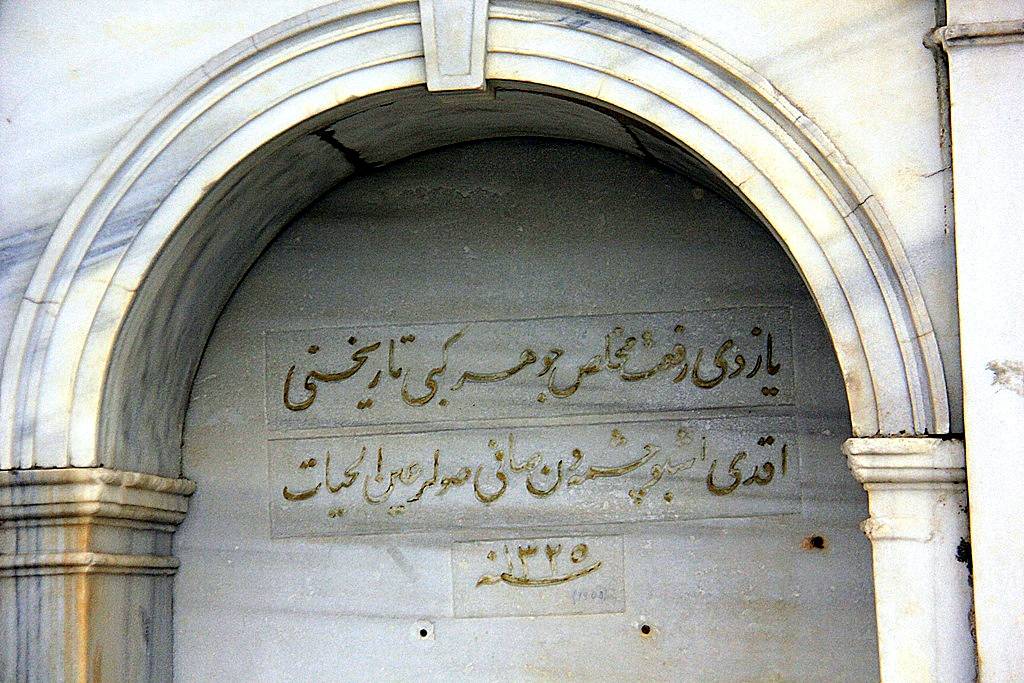 یازدی رفعت مخلص جوهر کبی تاریخنی
اقدی اشبو چشمه دن صافی صولر عین الحیات
سنه ١٣٢٥